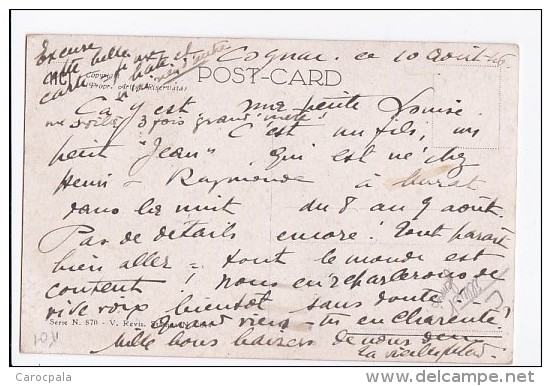 Excuse
cette belle
carte
Cognac, ce 10 août 46
NCT
Copyright
(Propr. Artist. Riservata)
POST-CARD
Ça y est ma petite Louise
me voilà 3 fois grand'mère!
C'est un fils, un
petit "Jean" qui est né chez
Henri & Raymonde à Murat
dans la nuit du 8 au 9 août.
Pas de détails encore! Tout paraît
bien aller = tout le monde est
content! Nous en reparlerons de
vive voix bientôt sans doute
Serie N. 570 - V. Revis.
Quand viens-tu en Charente?
Mille bons baisers de nous deux
La vieille
Carocpala